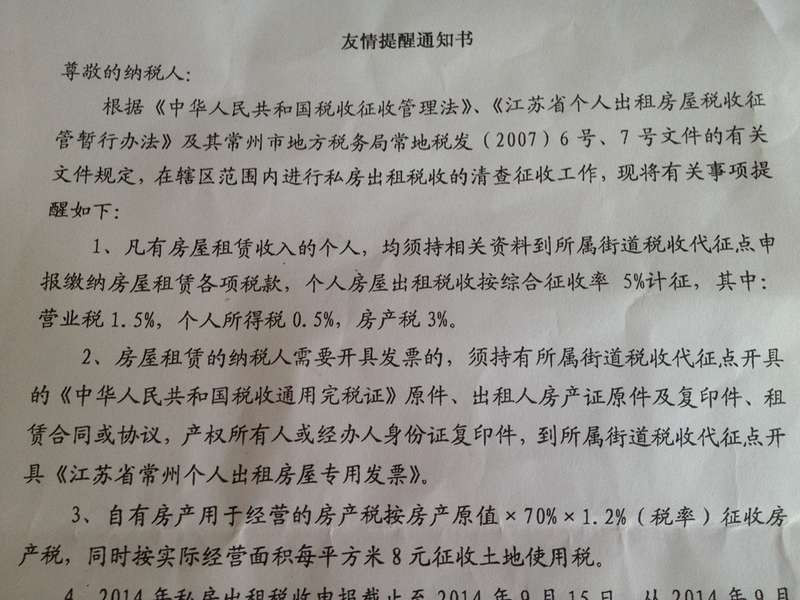 友情提醒通知书
尊敬的纳税人：
根据《中华人民共和国税收征收管理法》、《江苏省个人出租房屋税收征
管暂行办法》及其常州市地方税务局常地税发（2007）6号、7号文件的有关
文件规定，在辖区范围内进行私房出租税收的清查征收工作，现将有关事项提
醒如下：
1、凡有房屋租赁收入的个人，均须持相关资料到所属街道税收代征点申
报缴纳房屋租赁各项税款，个人房屋出租税收按综合征收率 5%计征，其中：
营业税1.5%，个人所得税0.5%，房产税3%。
2、房屋租赁的纳税人需要开具发票的，须持有所属街道税收代征点开具
的《中华人民共和国税收通用完税证》原件、出租人房产证原件及复印件、租
赁合同或协议，产权所有人或经办人身份证复印件，到所属街道税收代征点开
具《江苏省常州个人出租房屋专用发票》。
3、自有房产用于经营的房产税按房产原值×70%×1.2%（税率）征收房
产税，同时按实际经营面积每平方米8元征收土地使用税。
4、2014年私房出租税收申报截止至2014年9月15日，从2014年9月